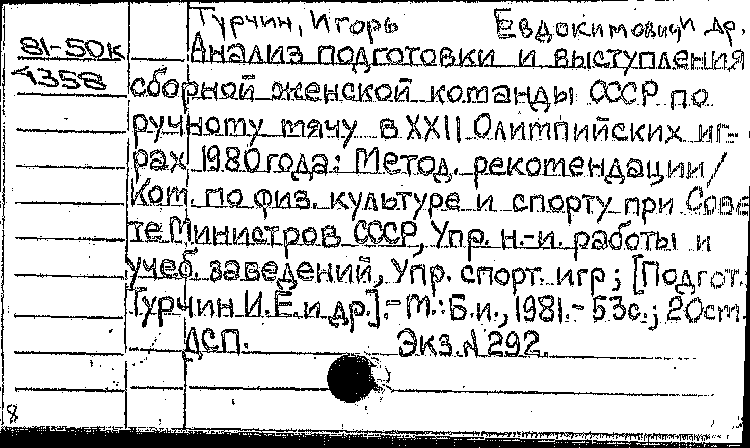 Турчин, Игорь Евдокимович и др.
81-50к Анализ подготовки и выступления
4358 сборной женской команды СССР по
ручному мячу в XXII Олимпийских иг-
рах 1980 года: Метод. рекомендации/
Ком. по физ. культуре и спорту при Сове
те Министров СССР, Упр. н.-и. работы и
учеб. заведений, Упр. спорт. игр; [Подгот.
Турчин И.Е. и др.].- М.: Б.и., 1981.- 53с.; 20см.
ДСП. Экз.№292.
8